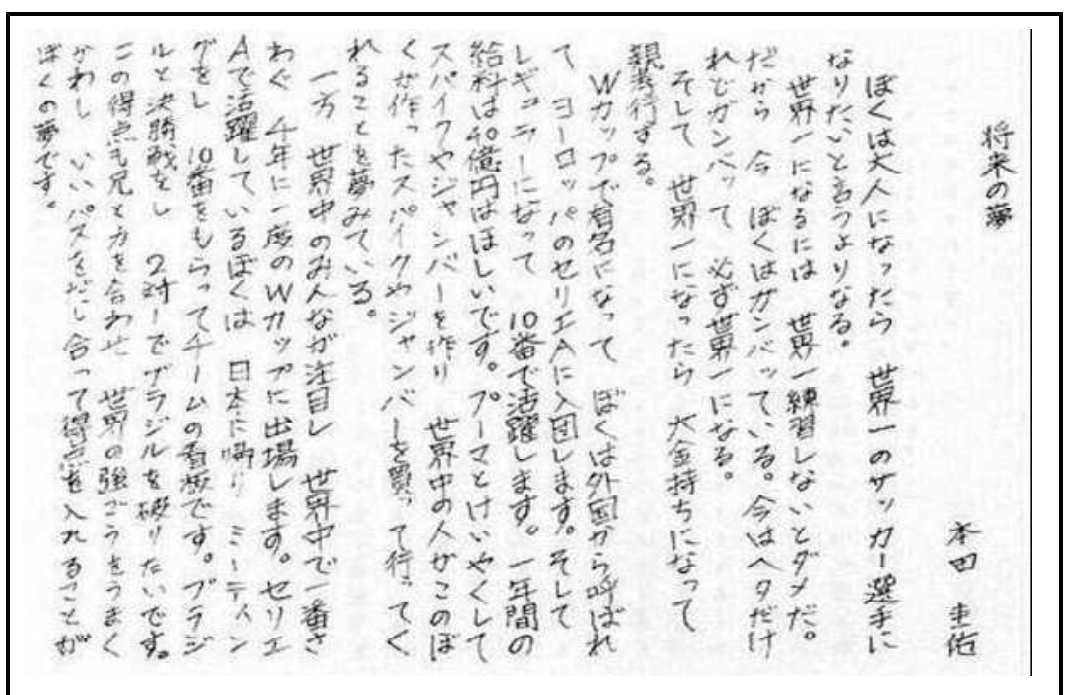 将来の夢
本田 圭佑
ぼくは大人になったら 世界一のサッカー選手に
なりたいと言うよりなる。
世界一になるには 世界一練習しないとダメだ。
だから 今 ぼくはガンバッている。今はヘタだけ
れどガンバッて 必ず世界一になる。
そして 世界一になったら 大金持ちになって
親孝行する。
Wカップで有名になって ぼくは外国から呼ばれ
て ヨーロッパのセリエAに入団します。そして
レギュラーになって 10番で活躍します。一年間の
給料は40億円はほしいです。プーマとけいやくして
スパイクやジャンバーを作り 世界中の人がこのぼ
くが作ったスパイクやジャンバーを買って行ってく
れることを夢みている。
一方 世界中のみんなが注目し 世界中で一番さ
わぐ 4年に一度のWカップに出場します。セリエ
Aで活躍しているぼくは 日本に帰り ミーティン
グをし 10番をもらってチームの看板です。ブラジ
ルと決勝戦をし 2対1でブラジルを破りたいです。
この得点も兄と力を合わせ 世界の強ごうをうまく
かわし いいパスをだし合って得点を入れることが
ぼくの夢です。